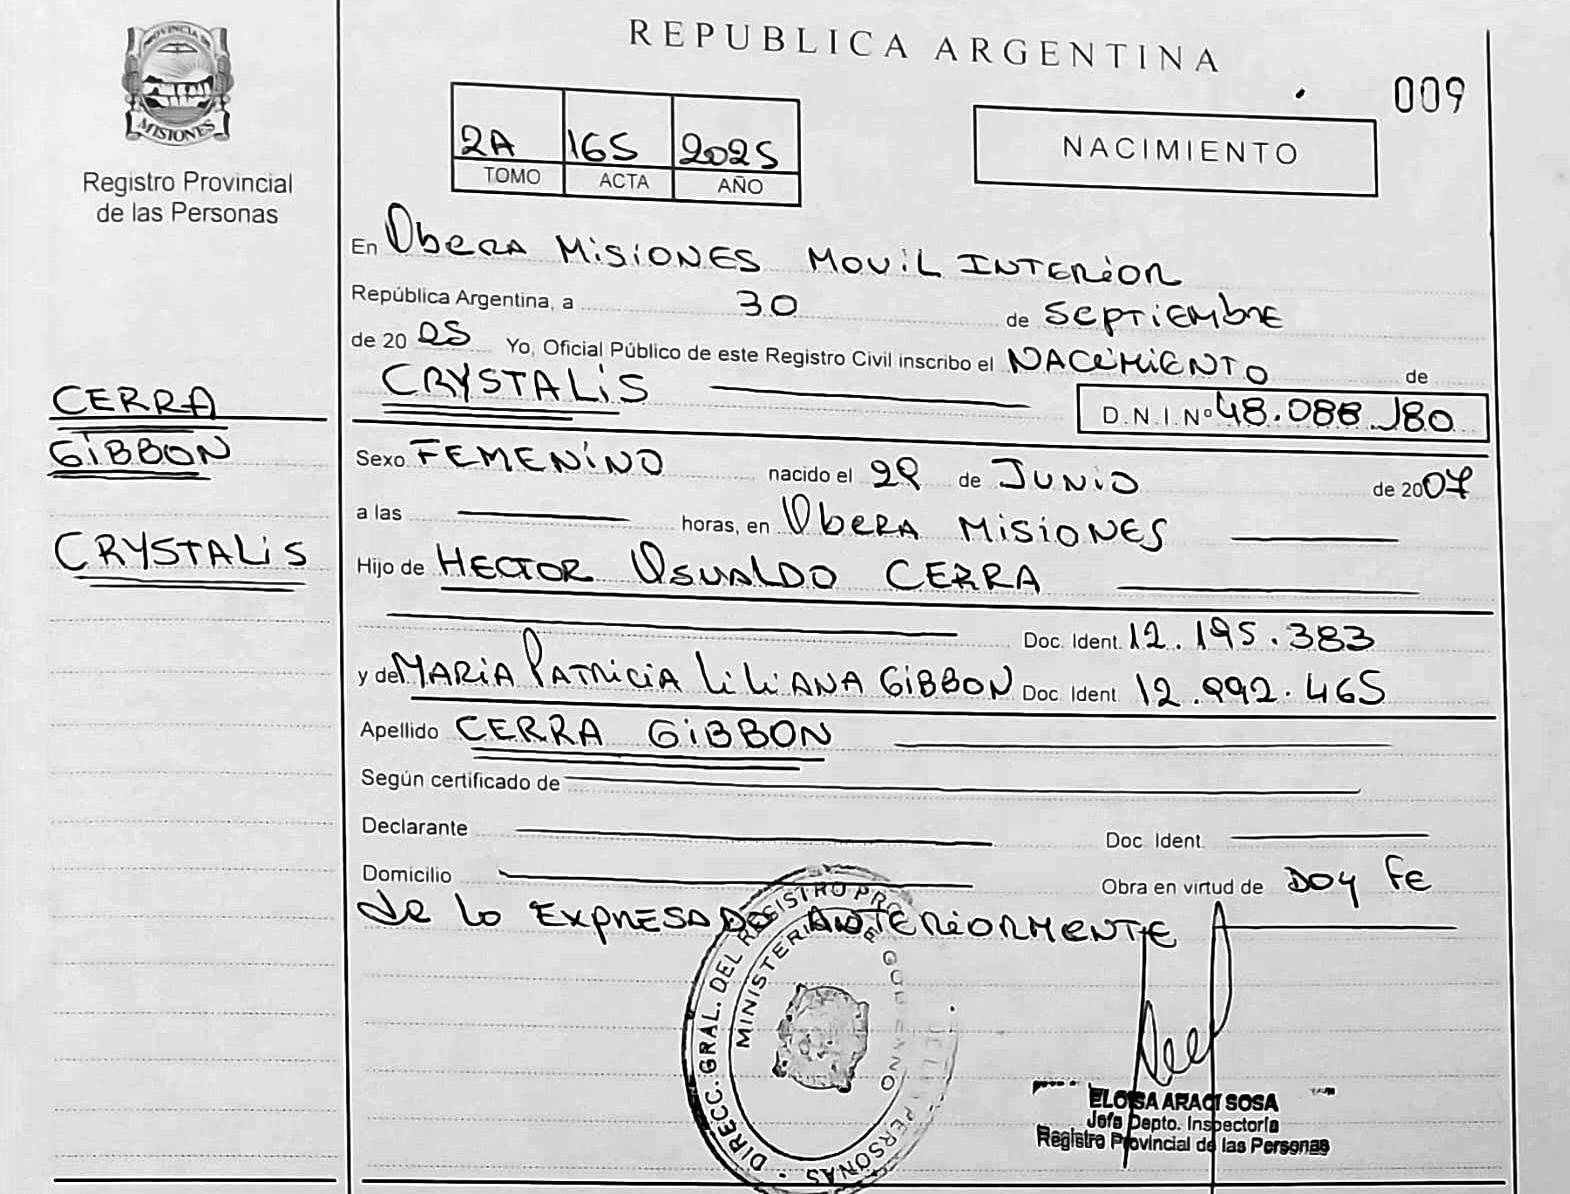 REPUBLICA ARGENTINA
009
PROVINCIA DE
MISIONES
Registro Provincial
de las Personas
2A 165 2025
TOMO ACTA AÑO
NACIMIENTO
En Obera Misiones Movil Interior
República Argentina, a 30 de Septiembre
de 20 25 Yo, Oficial Público de este Registro Civil inscribo el NACiMiENTO de
CRYSTALiS
D.N.I.Nº 48.088.180
CERRA
GiBBON
CRYSTALiS
Sexo FEMENiNO nacido el 29 de JUNiO de 2007
a las horas, en Obera Misiones
Hijo de HECTOR OSVALDO CERRA
Doc. Ident. 12.195.383
y de MARiA PATRiCiA LiLiANA GiBBON Doc Ident 12.992.465
Apellido CERRA GiBBON
Según certificado de
Declarante Doc Ident.
Domicilio Obra en virtud de DOY FE
de lo EXPRESADO ANTERiORMENTE
DIRECC. GRAL. DEL REGISTRO PERSONAS
MINISTERIO DE GOBIERNO
ELOISA ARACI SOSA
Jefa Depto. Inspectoría
Registro Provincial de las Personas